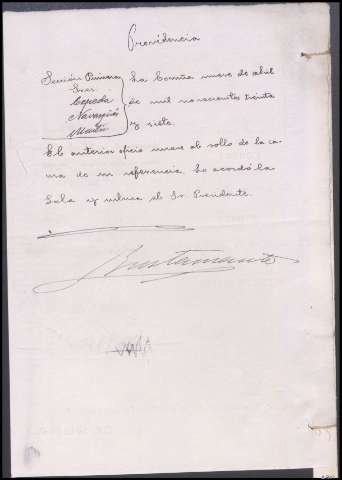 Providencia
Sección Primera
Sres.
Cepeda
Navarro
Martín
La Coruña nueve de abril
de mil novecientos treinta
y siete.
El anterior oficio únase al rollo de la cau-
sa de su referencia. Lo acordó la
Sala y rubrica el Sr. Presidente.
Bustamante